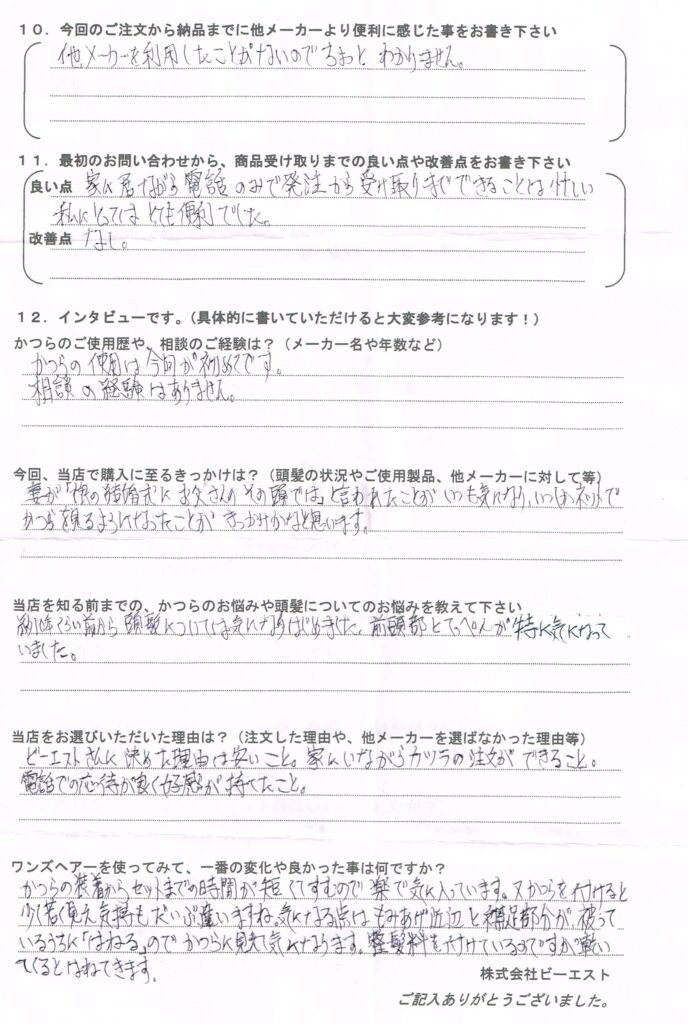 １０．今回のご注文から納品までに他メーカーより便利に感じた事をお書き下さい
他メーカーを利用したことがないのでちょっと わかりません。
１１．最初のお問い合わせから、商品受け取りまでの良い点や改善点をお書き下さい
良い点 家に居ながら電話のみで発注から受け取りまでできることは忙しい
私にとってはとても便利でした。
改善点 なし。
１２．インタビューです。（具体的に書いていただけると大変参考になります！）
かつらのご使用歴や、相談のご経験は？（メーカー名や年数など）
かつらの使用は今回が初めてです。
相談の経験はありません。
今回、当店で購入に至るきっかけは？（頭髪の状況やご使用製品、他メーカーに対して等）
妻が「娘の結婚式にお父さんのその頭では」と言われたことがいつも気になり、いつしかネットで
かつらを見るようになったことがきっかけかなと思います。
当店を知る前までの、かつらのお悩みや頭髪についてのお悩みを教えて下さい
約 年くらい前から頭髪については気になりはじめました。前頭部とてっぺんが特に気になって
いました。
当店をお選びいただいた理由は？（注文した理由や、他メーカーを選ばなかった理由等）
ビーエストさんに決めた理由は安いこと。家にいながらカツラの注文ができること。
電話での応待が良く好感が持てたこと。
ワンズヘアーを使ってみて、一番の変化や良かった事は何ですか？
かつらの装着からセットまでの時間が短くてすむので楽で気に入っています。又かつらを付けると
少し若く見え気持もだいぶ違いますね。気になる点はもみあげ近辺と補足部分が被って
いるうちに「はねる」のでかつらに見えて気になります。整髪料を付けているのですが乾い
てくるとはねてきます。
株式会社ビーエスト
ご記入ありがとうございました。